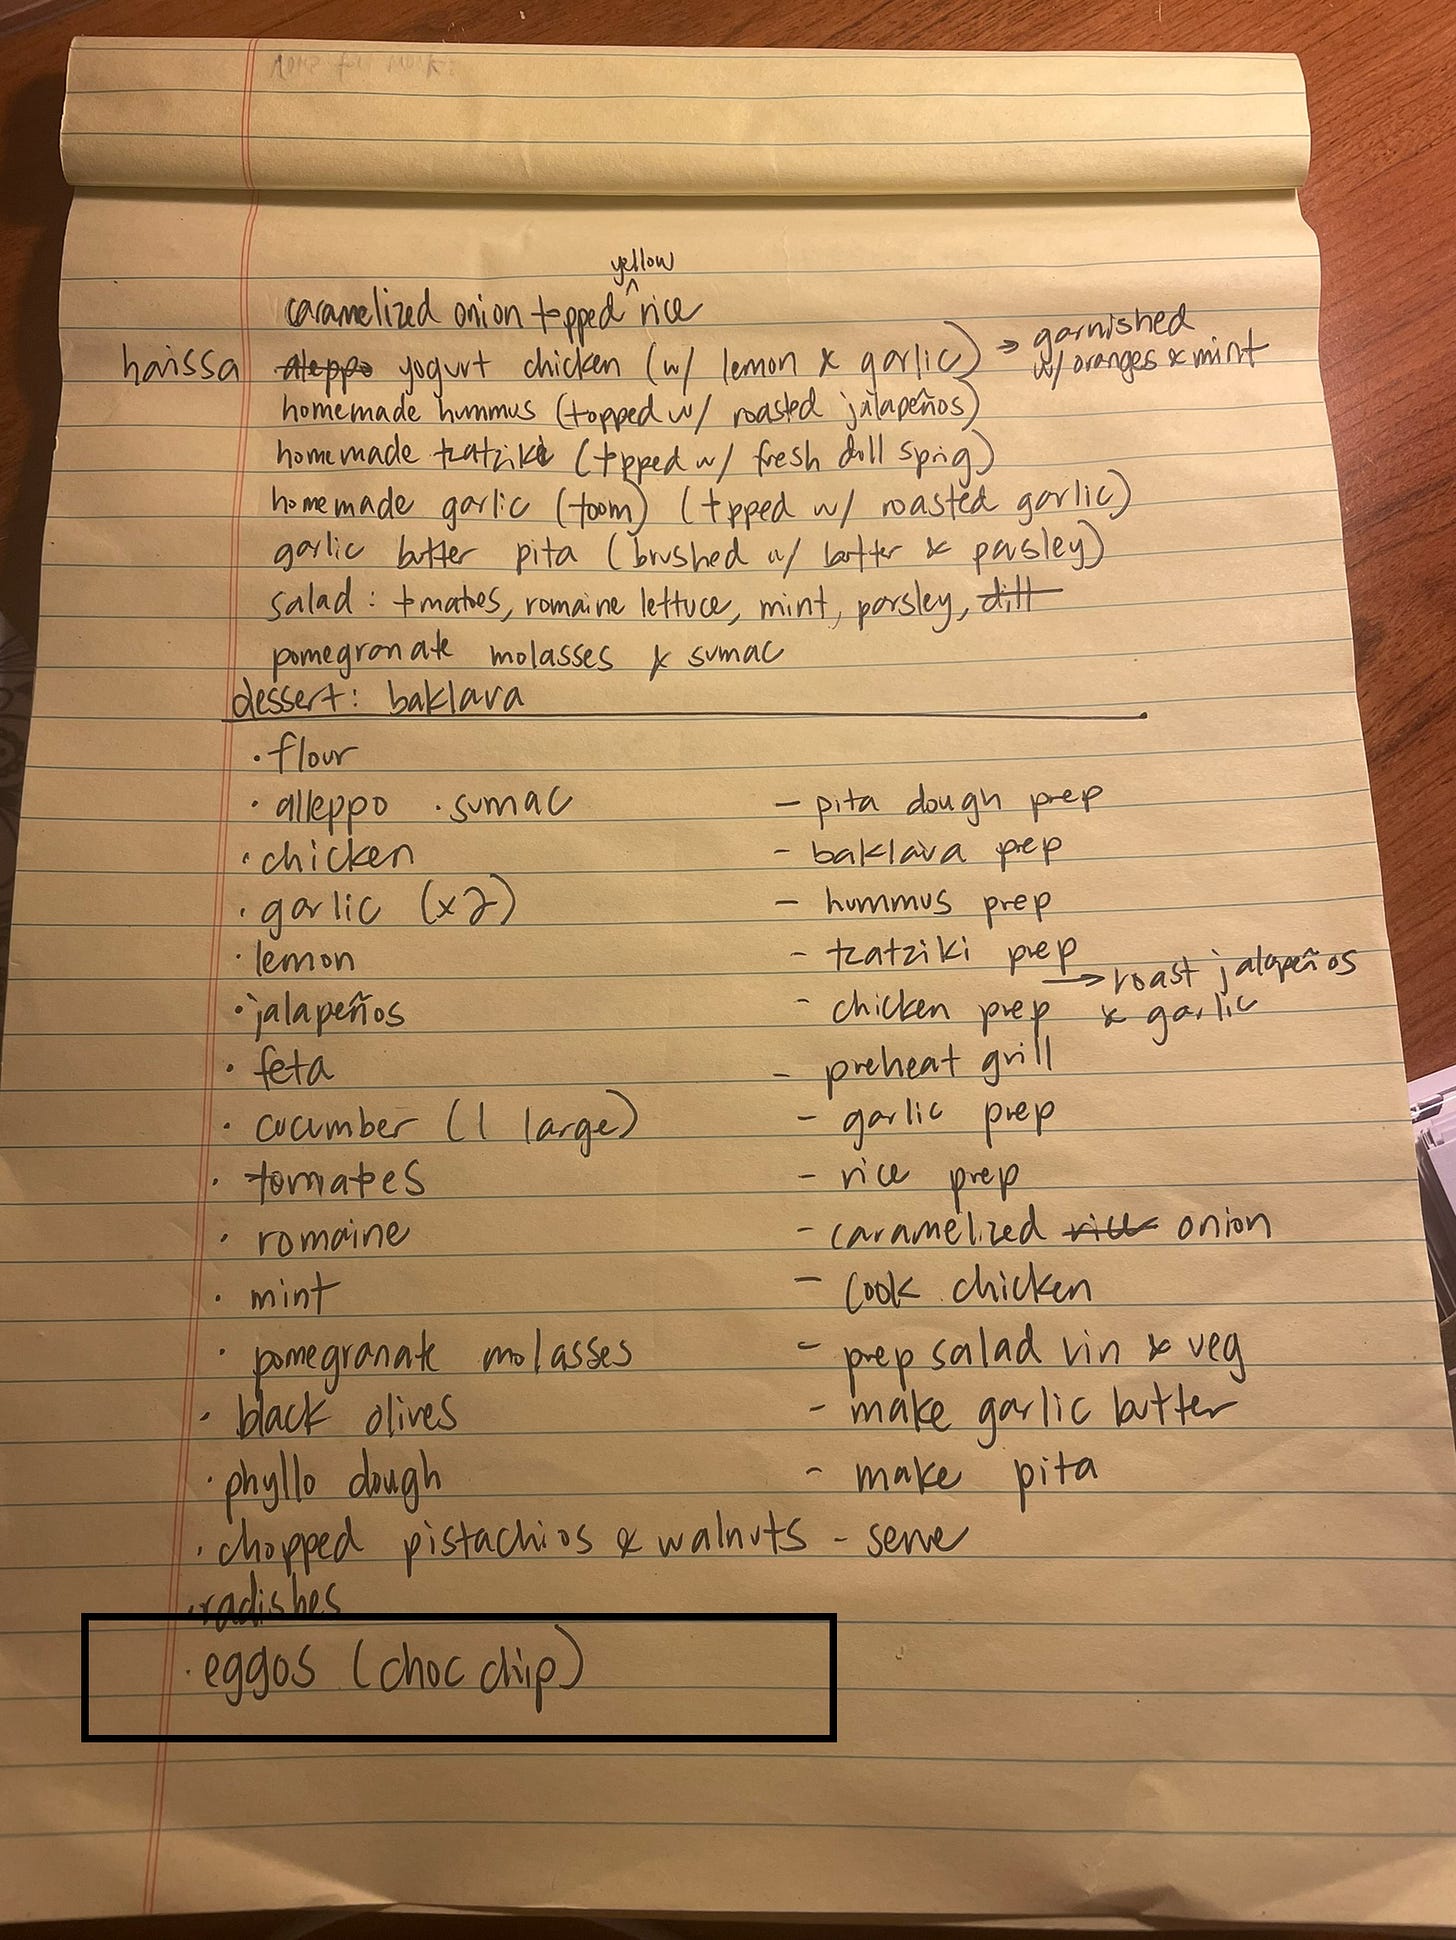 yellow
caramelized onion topped ^ rice
haissa aleppo yogurt chicken (w/ lemon & garlic) → garnished
w/ oranges & mint
homemade hummus (topped w/ roasted jalapeños)
homemade tzatziki (tpped w/ fresh dill sprig)
homemade garlic (toom) (tpped w/ roasted garlic)
garlic butter pita (brushed w/ butter & parsley)
salad: tmatoes, romaine lettuce, mint, parsley, dill
pomegranate molasses & sumac
dessert: baklava
· flour
· alleppo · sumac
· chicken
· garlic (x2)
· lemon
· jalapeños
· feta
· cucumber (1 large)
· tomatoes
· romaine
· mint
· pomegranate molasses
· black olives
· phyllo dough
· chopped pistachios & walnuts
· radishes
· eggos (choc chip)
- pita dough prep
- baklava prep
- hummus prep
- tzatziki prep
→ roast jalapeños
& garlic
- chicken prep
- preheat grill
- garlic prep
- rice prep
- caramelized rice onion
- cook chicken
- prep salad vin & veg
- make garlic butter
- make pita
- serve